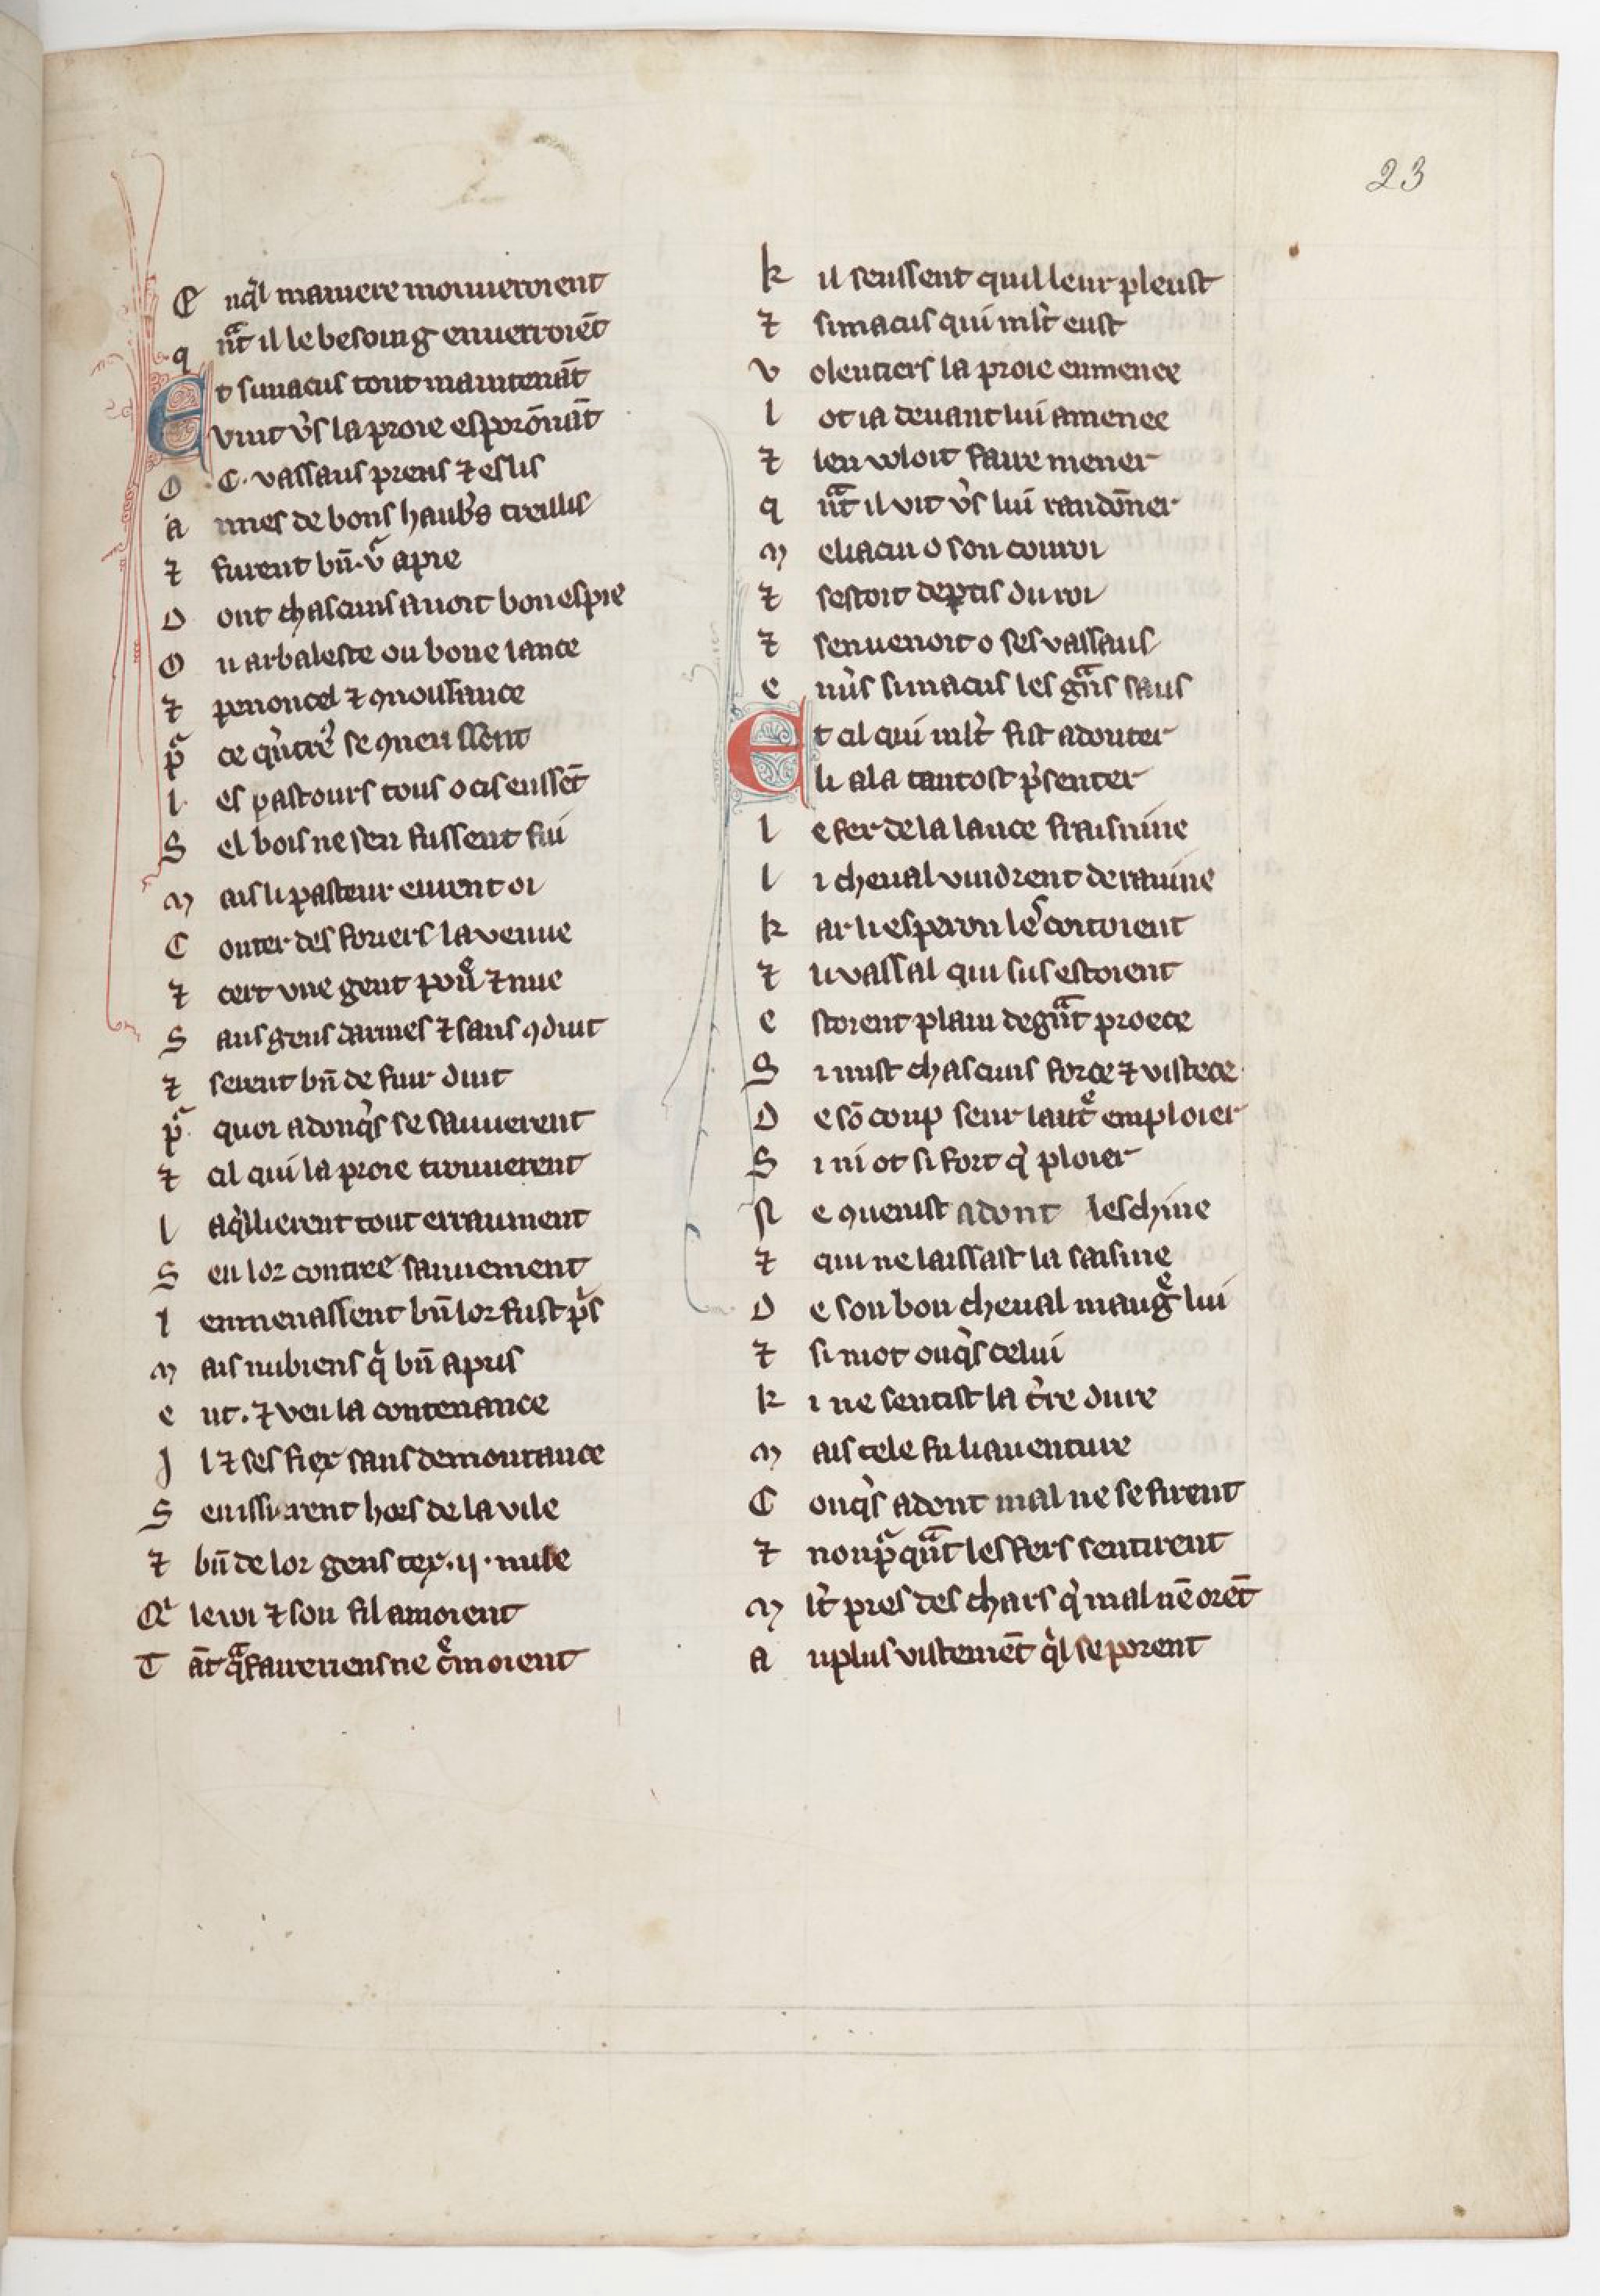 23
E nqͥl maniere mouueroient
q nͣt il le besoing en uerroiẽt
Et simacus tout maintenãt
vint v̓s la proie esporõnãt
O .C. vassaus preus ⁊ eslis
a rmes de bons haub̓s treillis
⁊ furent bñ .v͛ apie
D ont chascuns auoit bon espie
O u arbaleste ou bone lance
⁊ penoncel ⁊ ꝯnoissance
pͬ ce qͥ
l es pastours tous ocis eussẽt
S el bois ne sen fussent fui
m ais li pasteur eurent oi
C onter des foriers la venue
⁊ cert vne gent ⁊ nue
S ans gens darmes ⁊ sans ꝯduit
⁊ seient bñ de fuir duit
pͬ quoi adonq̓s se sauuerent
⁊ cil qui la proie trouuerent
l aq̓llierent tout erraument
S en lor contree sauuement
l enmenassent bñ lor fust p̓s
m ais nubiens qͥ bñ apris
e ut. ⁊ veu la contenance
J l ⁊ ses fiex sans demourance
S en issirent hors de la vile
⁊ bñ de lor gens tex .ij. mile
Qͥ le roi ⁊ son fil amoient
T ãt qͣ faire riens ne cͤmoient
k il seussent quil leur pleust
⁊ simacus qui ml̓t eust
v olentiers la proie enmenee
l ot ia deuant lui amenee
⁊ len voloit faire mener
q nͣt il vit v̓s lui randõner
m eliacin o son conroi
⁊ sestoit deptis du roi
⁊ sen uenoit o ses vassaus
e nu̓s simacus les gͣns saus
Et cil qui ml̓t fist a douter
li ala tantost p̓senter
l e fer de la lance fraisnine
l i cheual vindrent de rauine
k ar li esperon les coitoient
⁊ li vassal qui sus estoient
e stoient plain de gnͣt proece
S i mist chascuns force ⁊ vistece
D e sõ coup seur lautͤ emploier
S i ni ot si fort qͥ ploier
N e ꝯuenist adont leschine
⁊ qui ne laissast la saisine
D e son bon cheual maugͤ lui
⁊ si niot onq̓s celui
k i ne sentist la t̓re dure
m ais tele fu li auenture
C onq̓s adont mal ne se firent
⁊ nonpͬqnͣt les fers sentirent
m l̓t pres des chars qͥ mal nẽ orẽt
a u plus vistemẽt qͥl se porent